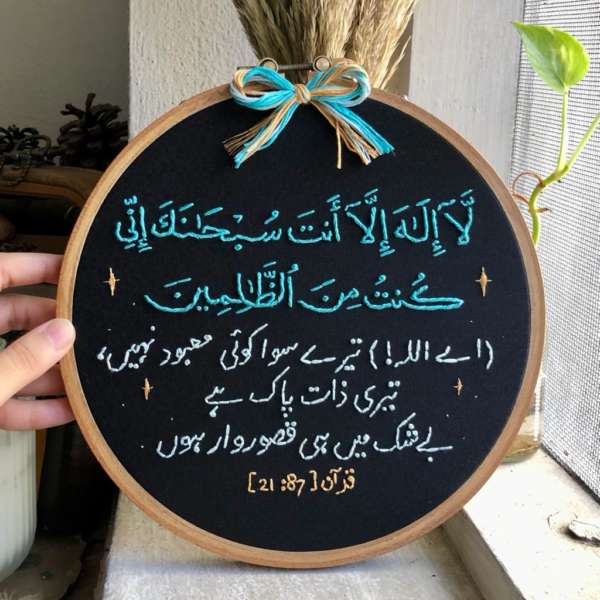 لَّآ إِلَٰهَ إِلَّآ أَنتَ سُبْحَٰنَكَ إِنِّي
كُنتُ مِنَ ٱلظَّٰلِمِينَ
(اے اللہ!) تیرے سوا کوئی معبود نہیں،
تیری ذات پاک ہے
بے شک میں ہی قصوروار ہوں
قرآن [21:87]